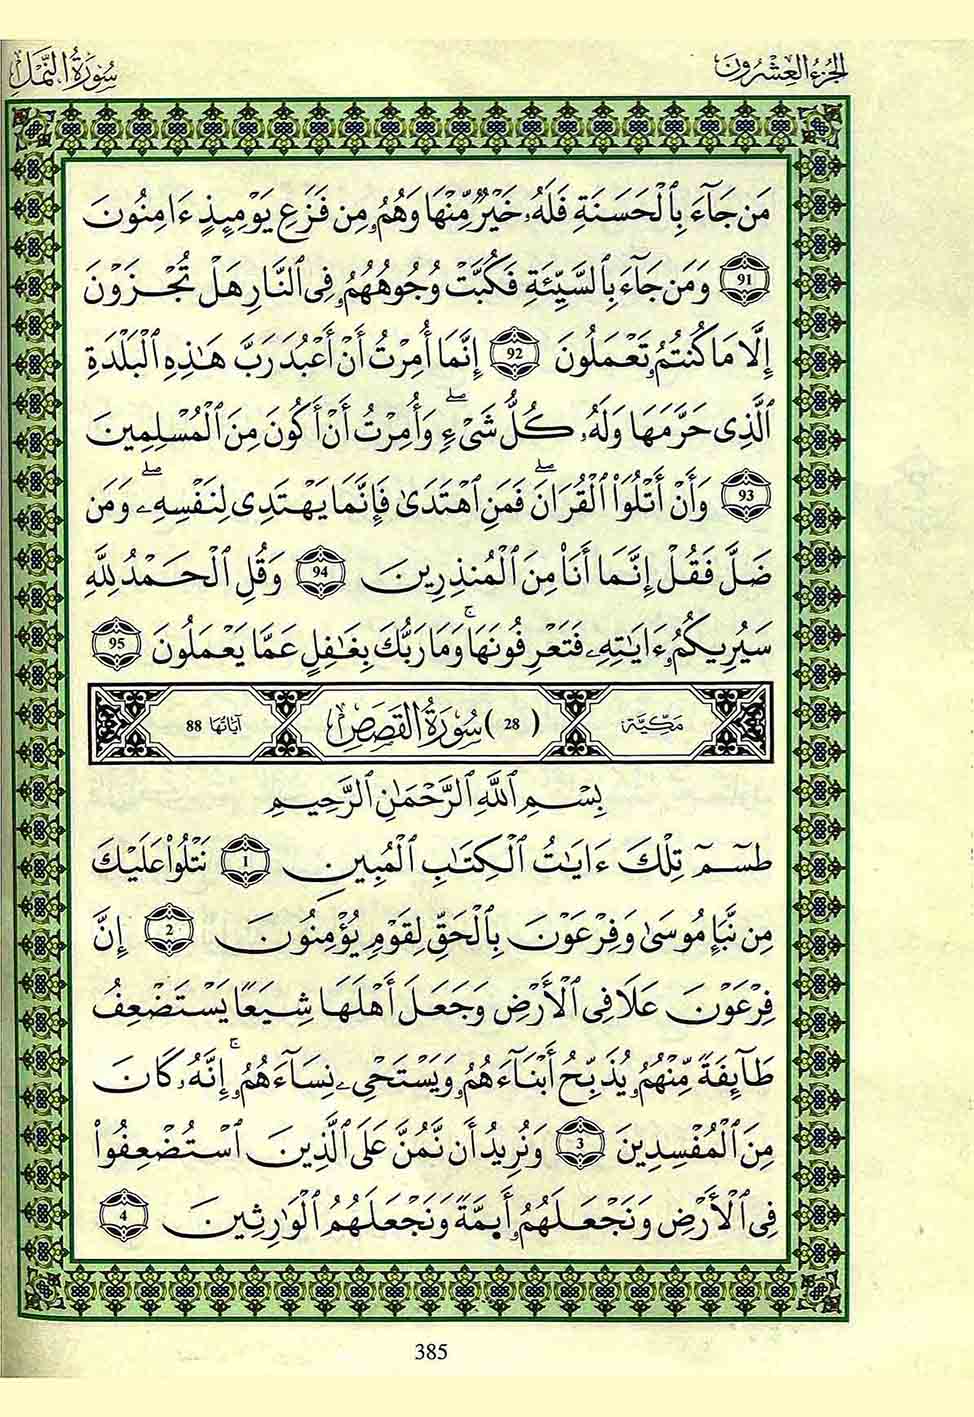 الجزء العشرون
سورة النمل
مَن جَآءَ بِالْحَسَنَةِ فَلَهُۥ خَيْرٌ مِّنْهَا وَهُمُۥ مِن فَزَعِ يَوْمِئِذٍ ءَامِنُونَ
91 وَمَن جَآءَ بِالسَّيِّئَةِ فَكُبَّتْ وُجُوهُهُمُۥ فِى النَّارِ هَلْ تُجْزَوْنَ
إِلَّا مَا كُنتُمُۥ تَعْمَلُونَ 92 إِنَّمَا أُمِرْتُ أَنْ أَعْبُدَ رَبَّ هَٰذِهِ الْبَلْدَةِ
الَّذِى حَرَّمَهَا وَلَهُۥ كُلُّ شَىْءٍۖ وَأُمِرْتُ أَنْ أَكُونَ مِنَ الْمُسْلِمِينَ
93 وَأَنْ أَتْلُوَا۟ الْقُرَانَۖ فَمَنِ اهْتَدَىٰ فَإِنَّمَا يَهْتَدِى لِنَفْسِهِۦۖ وَمَن
ضَلَّ فَقُلْ إِنَّمَا أَنَا۠ مِنَ الْمُنذِرِينَ 94 وَقُلِ الْحَمْدُ لِلَّهِ
سَيُرِيكُمُۥ ءَايَٰتِهِۦ فَتَعْرِفُونَهَاۚ وَمَا رَبُّكَ بِغَٰفِلٍ عَمَّا يَعْمَلُونَ 95
مكية (28) سُورَةُ الْقَصَصِ آيَاتُهَا 88
بِسْمِ اللَّهِ الرَّحْمَٰنِ الرَّحِيمِ
طسٓمٓ تِلْكَ ءَايَٰتُ الْكِتَٰبِ الْمُبِينِ 1 نَتْلُوا۟ عَلَيْكَ
مِن نَّبَإِ مُوسَىٰ وَفِرْعَوْنَ بِالْحَقِّ لِقَوْمٍ يُؤْمِنُونَ 2 إِنَّ
فِرْعَوْنَ عَلَا فِى الْأَرْضِ وَجَعَلَ أَهْلَهَا شِيَعًا يَسْتَضْعِفُ
طَآئِفَةً مِّنْهُمُۥ يُذَبِّحُ أَبْنَآءَهُمُۥ وَيَسْتَحْىِۦ نِسَآءَهُمُۥۚ إِنَّهُۥ كَانَ
مِنَ الْمُفْسِدِينَ 3 وَنُرِيدُ أَن نَّمُنَّ عَلَى الَّذِينَ اسْتُضْعِفُوا۟
فِى الْأَرْضِ وَنَجْعَلَهُمُۥ أَيِمَّةً وَنَجْعَلَهُمُ الْوَٰرِثِينَ 4
385